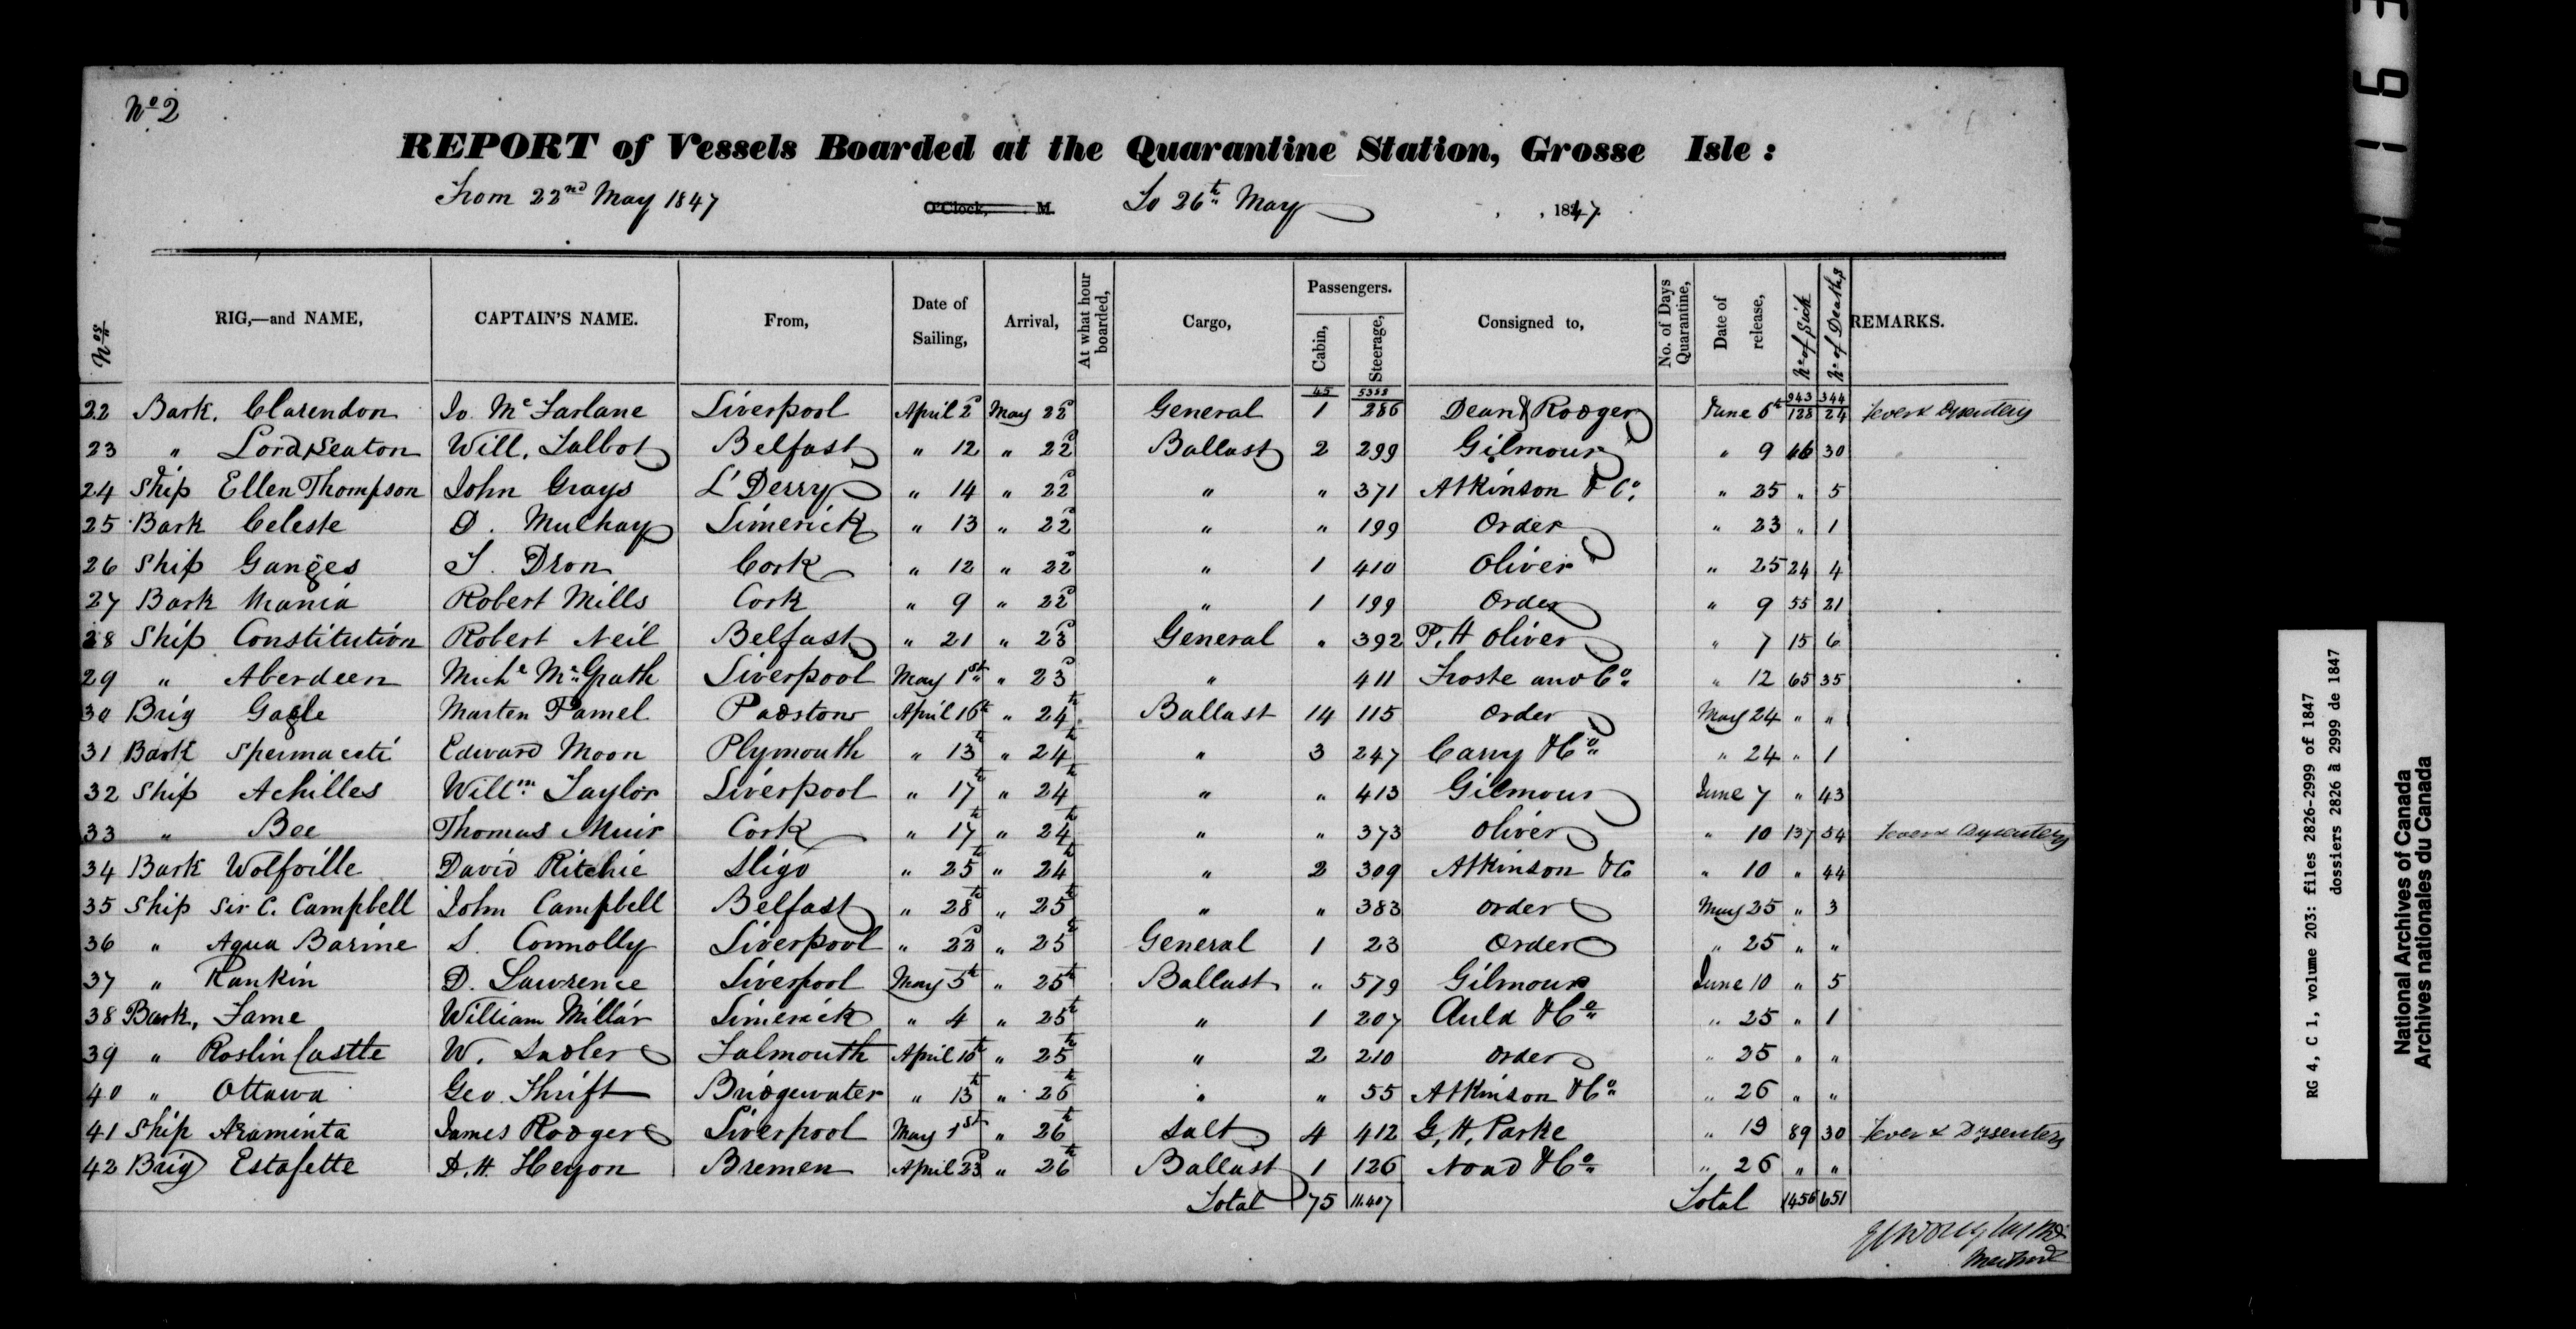 No 2
REPORT of Vessels Boarded at the Quarantine Station, Grosse Isle :
From 22nd May 1847 O'Clock, M. To 26th May 1847.
Nos RIG,—and NAME, CAPTAIN'S NAME. From, Date of Sailing, Arrival, At what hour boarded, Cargo, Passengers. Cabin, Steerage, Consigned to, No. of Days Quarantine, Date of release, No of Sick No of Deaths REMARKS.
45 5388 943 344
22 Bark. Clarendon Jo. McFarlane Liverpool April 2d May 22d General 1 286 Dean & Rodger June 6th 128 24 Fever & Dysentery
23 " Lord Seaton Will. Talbot Belfast " 12 " 22d Ballast 2 299 Gilmour " 9 46 30
24 Ship Ellen Thompson John Grays L'Derry " 14 " 22d " " 371 Atkinson & Co. " 25 " 5
25 Bark Celeste D. Mulhay Limerick " 13 " 22d " " 199 Order " 23 " 1
26 Ship Ganges T. Dron Cork " 12 " 22d " 1 410 Oliver " 25 24 4
27 Bark Maria Robert Mills Cork " 9 " 22d " 1 199 Order " 9 55 21
28 Ship Constitution Robert Neil Belfast " 21 " 23d General " 392 P. H Oliver " 7 15 6
29 " Aberdeen Michl McGrath Liverpool May 1st " 23d " 411 Froste and Co. " 12 65 35
30 Brig Gagle Marten Pamel Padstow April 16th " 24th Ballast 14 115 Order May 24 " "
31 Bark Spermaceti Edward Moon Plymouth " 13th " 24th " 3 247 Carry & Co. " 24 " 1
32 Ship Achilles Willm Taylor Liverpool " 17th " 24th " " 413 Gilmour June 7 " 43
33 " Bee Thomas Muir Cork " 17th " 24th " " 373 Oliver " 10 137 54 Fever & Dysentery
34 Bark Wolfville David Ritchie Sligo " 25th " 24th " 2 309 Atkinson & Co " 10 " 44
35 Ship Sir C. Campbell John Campbell Belfast " 28th " 25th " " 383 order May 25 " 3
36 " Aqua Barine S. Connolly Liverpool " 22d " 25th General 1 23 Order " 25 " "
37 " Rankin D. Lawrence Liverpool May 5th " 25th Ballast " 579 Gilmour June 10 " 5
38 Bark, Fame William Millar Limerick " 4 " 25th " 1 207 Auld & Co. " 25 " 1
39 " Roslin Castle W. Sadler Falmouth April 10th " 25th " 2 210 order " 25 " "
40 " Ottawa Geo. Thrift Bridgewater " 13th " 26th " " 55 Atkinson & Co. " 26 " "
41 Ship Araminta James Rodger Liverpool May 1st " 26th Salt 4 412 G. H. Parke " 19 89 30 Fever & Dysentery
42 Brig Estafette D. H. Heyon Bremen April 23d " 26th Ballast 1 126 Noad & Co. " 26 " "
Total 75 11.407 Total 1456 651
RG 4, C 1, volume 203: files 2826-2999 of 1847
dossiers 2826 à 2999 de 1847
National Archives of Canada
Archives nationales du Canada